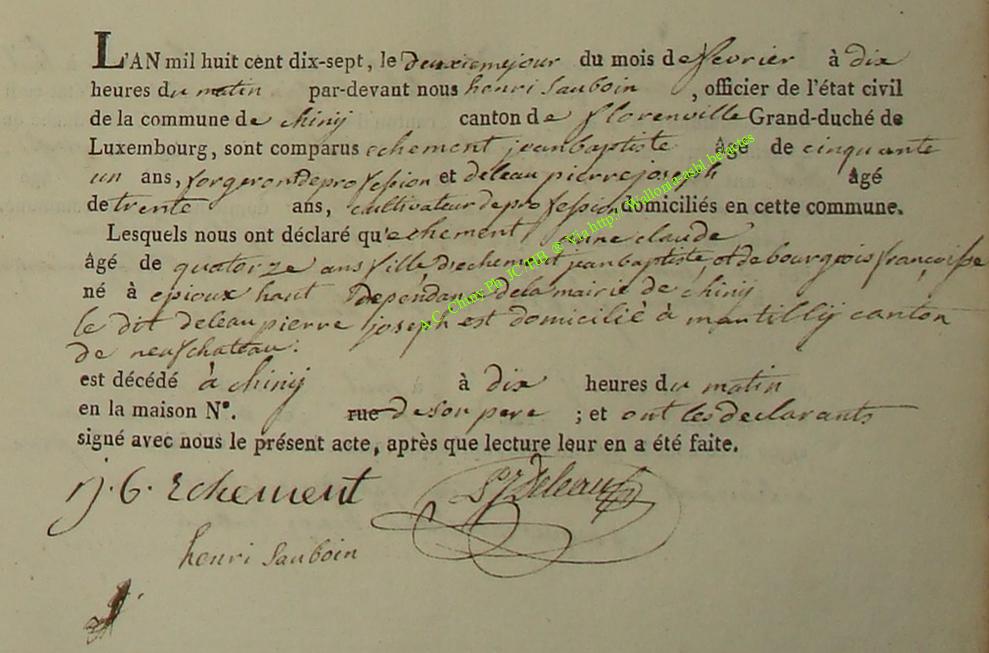 L'AN mil huit cent dix-sept, le deuxiemejour du mois de fevrier à dix
heures du matin par-devant nous henri Sauboin, officier de l'état civil
de la commune de chinij canton de florenville Grand-duché de
Luxembourg, sont comparus echement jean baptiste âgé de cinquante
un ans, forgeron de profession et deleau pierre joseph âgé
de trente ans, cultivateur de profession domiciliés en cette commune.
Lesquels nous ont déclaré qu'echement anne claude
âgé de quatorze ans fille d'echement jean baptiste, et de bourgeois françoise
né à epioux haut dependan de la mairie de chinij
le dit deleau pierre joseph est domicilié à mantillij canton
de neufchateau.
est décédé à chinij à dix heures du matin
en la maison N°. rue de son pere ; et ont les declarants
signé avec nous le présent acte, après que lecture leur en a été faite.
j. b. Echement Deleau
henri Sauboin
A.C. Chiny Ph. JC HB @ Via http://Wallonia-asbl.be/actes